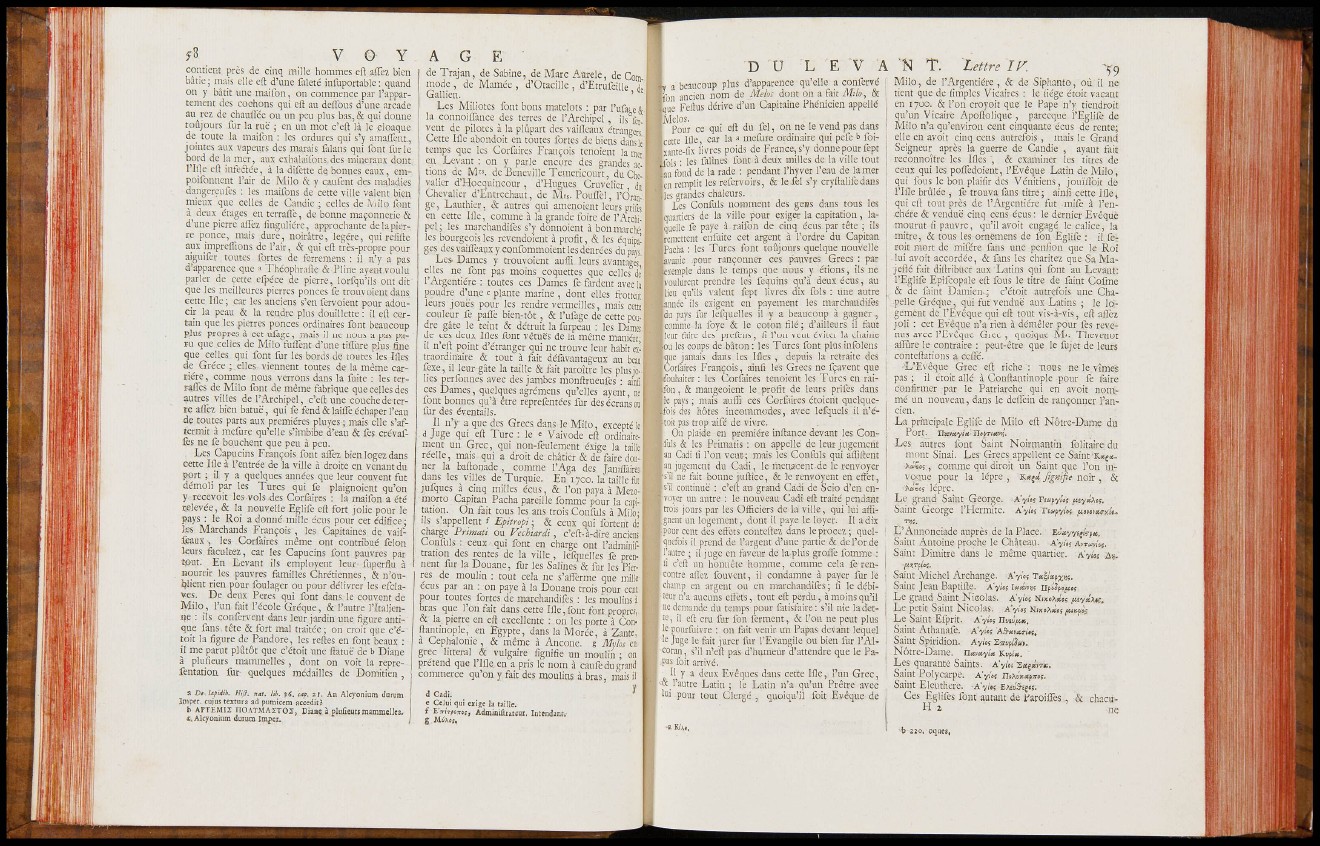 58 VOYAGE
contient près de cinq mille hommes est assez bien
bâtie; mais elle est d'une saleté insuportable: quand
on y bâtit une maison, on commence par l'appar-
tement des cochons qui est au dessous d'une arcade
au rez de chaussée ou un peu plus bas, & qui donne
toûjours sur la ruë; en un mot c'est là le cloaque
de toute la maison: les ordures qui s'y amassent,
jointes aux vapeurs des marais salans qui sont sur le
bord de la mer, aux exhalaisons des mineraux dont
l'Isle est infectée, à la disette de bonnes eaux, em-
poisonnent l'air de Milo & y causent des maladies
dangereuses: les maisons de cette ville valent bien
mieux que celles de Candie; celles de Milo sont
à deux étages en terrasse, de bonne maçonnerie &
d'une pierre assez singuliére, approchante de la pier-
re ponce, mais dure, noirâtre, legére, qui résiste
aux impressions de l'air, & qui est très-propre pour
aiguiser toutes sortes de ferremens: il n'y a pas
d'apparence que a Théophraste & Pline ayent voulu
parler de cette espéce de pierre, lorsqu'ils ont dit
que les meilleures pierres ponces se trouvoient dans
cette Isle; car les anciens s'en servoient pour adou-
cir la peau & la rendre plus douillette: il est cer-
tain que les pierres ponces ordinaires sont beaucoup
plus propres à cet usage, mais il ne nous a pas pa-
ru que celles de Milo fussent d'une tissure plus fine
que celles qui sont sur les bords de toutes les Isles
de Gréce; elles viennent toutes de la même car-
riére, comme nous verrons dans la suite: les ter-
rasses de Milo sont de même fabrique que celles des
autres villes de l'Archipel, c'est une couche de ter-
re assez bien batuë, qui se fend & laisse échaper l'eau
de toutes parts aux premiéres pluyes; mais elle s'af-
fermit à mesure qu'elle s'imbibe d'eau & ses crévas-
ses ne se bouchent que peu à peu.
Les Capucins François sont assez bien logez dans
cette Isle à l'entrée de la ville à droite en venant du
port; il y a quelques années que leur couvent fut
démoli par les Turcs qui se plaignoient qu'on
y recevoit les vols des Corsaires: la maison a été
relevée, & la nouvelle Eglise est fort jolie pour le
pays: le Roi a donné mille écus pour cet édifice;
les Marchands François, les Capitaines de vais-
seaux, les Corsaires même ont contribué selon
leurs facultez, car les Capucins sont pauvres par
tout. En Levant ils employent leur superflu à
nourrir les pauvres familles Chrétiennes, & n'ou-
blient rien pour soulager ou pour délivrer les escla-
ves. De deux Peres qui sont dans le couvent de
Milo, l'un fait l'école Gréque, & l'autre l'Italien-
ne: ils conservent dans leur jardin une figure anti-
que sans tête & fort mal traitée; on croit que c'é-
toit la figure de Pandore, les restes en sont beaux:
il me parut plûtôt que c'étoit une statuë de b Diane
à plusieurs mammelles, dont on voit la repre-
sentation sur quelques médailles de Domitien,
a De lapidib. Hist. nat. lib. 36. cap. 21. An Alcyonium durum
Imper. cujus textura ad pumicem accedit?
b ΑΡΤΕΜΙΣ ΠΟΛΥΜΑΣΤΟΣ, Diane à plusieurs mammelles.
c Alcyonium durum Imper.
de Trajan, de Sabine, de Marc Aurele, de Com-
mode, de Mamée, d'Otacille, d'Etruscille, de
Gallien.
Les Miliotes sont bons matelots: par l'usage &
la connoissance des terres de l'Archipel, ils ser-
vent de pilotes à la plûpart des vaisseaux étrangers.
Cette Isle abondoit en toutes sortes de biens dans le
temps que les Corsaires François tenoient la mer
en Levant: on y parle encore des grandes ac-
tions de Mrs. de Beneville Temericourt, du Che-
valier d'Hocquincour, d'Hugues Cruvelier, du
Chevalier d'Entrechaut, de Mrs. Poussel, l'Oran-
ge, Lauthier, & autres qui amenoient leurs prises
en cette Isle, comme à la grande foire de l'Archi-
pel; les marchandises s'y donnoient à bon marché;
les bourgeois les revendoient à profit, & les équipa-
ges des vaisseaux y consommoient les denrées du pays.
Les Dames y trouvoient aussi leurs avantages,
elles ne sont pas moins coquettes que celles de
l'Argentiére: toutes ces Dames se fardent avec la
poudre d'une c plante marine, dont elles frottent
leurs jouës pour les rendre vermeilles, mais cette
couleur se passe bien-tôt, & l'usage de cette pou-
dre gâte le teint & détruit la surpeau: les Dames
de ces deux Isles sont vêtuës de la même maniére;
il n'est point d'étranger qui ne trouve leur habit ex-
traordinaire & tout à fait désavantageux au beau
sexe, il leur gâte la taille & fait paroître les plus jo-
lies personnes avec des jambes monstrueuses: ainsi
ces Dames, quelques agrémens qu'elles ayent, ne
sont bonnes qu'à être representées sur des écrans ou
sur des éventails.
Il n'y a que des Grecs dans le Milo, excepté le
d Juge qui est Turc: le e Vaivode est ordinaire-
ment un Grec, qui non-seulement éxige la taille
réelle, mais qui a droit de châtier & de faire don-
ner la bastonade, comme l'Aga des Janissaires
dans les villes de Turquie. En 1700. la taille fut
jusques à cinq milles écus, & l'on paya à Mezo-
morto Capitan Pacha pareille somme pour la capi-
tation. On fait tous les ans trois Consuls à Milo;
ils s'appellent f Epitropi; & ceux qui sortent de
charge Primati ou Vechiardi, c'est-à-dire anciens
Consuls: ceux qui sont en charge ont l'adminis-
tration des rentes de la ville, lesquelles se pren-
nent sur la Douane, sur les Salines & sur les Pier-
res de moulin: tout cela ne s'afferme que mille
écus par an: on paye à la Douane trois pour cent
pour toutes sortes de marchandises: les moulins à
bras que l'on fait dans cette Isle, sont fort propres,
& la pierre en est excellente: on les porte à Con-
stantinople, en Egypte, dans la Morée, à Zante,
à Cephalonie, & même à Ancone. g Mylos en
grec litteral & vulgaire signifie un moulin; on
prétend que l'Isle en a pris le nom à cause du grand
commerce qu'on y fait des moulins à bras, mais il
y
d Cadi.
e Celui qui exige la taille.
f Ἐπίτροπος, Administrateur. Intendant.
g Μύλος.
DU LEVANT. Lettre IV. 59
y a beaucoup plus d'apparence qu'elle a conservé
son ancien nom de Melos dont on a fait Milo, &
que Festus dérive d'un Capitaine Phénicien appellé
Melos.
Pour ce qui est du sel, on ne le vend pas dans
cette Isle, car la a mesure ordinaire qui pese b soi-
xante-six livres poids de France, s'y donne pour sept
sols: les salines sont à deux milles de la ville tout
au fond de la rade: pendant l'hyver l'eau de la mer
en remplit les reservoirs, & le sel s'y crystalise dans
les grandes chaleurs.
Les Consuls nomment des gens dans tous les
quartiers de la ville pour exiger la capitation, la-
quelle se paye à raison de cinq écus par tête; ils
remettent ensuite cet argent à l'ordre du Capitan
Pacha: les Turcs font toûjours quelque nouvelle
avanie pour rançonner ces pauvres Grecs: par
exemple dans le temps que nous y étions, ils ne
voulurent prendre les sequins qu'à deux écus, au
lieu qu'ils valent sept livres dix sols: une autre
année ils exigent en payement les marchandises
du pays sur lesquelles il y a beaucoup à gagner,
comme la soye & le coton filé; d'ailleurs il faut
leur faire des presens, si l'on veut éviter la chaîne
ou les coups de bâton: les Turcs sont plus insolens
que jamais dans les Isles, depuis la retraite des
Corsaires François, ainsi les Grecs ne sçavent que
souhaiter: les Corsaires tenoient les Turcs en rai-
son, & mangeoient le profit de leurs prises dans
le pays; mais aussi ces Corsaires étoient quelque-
fois des hôtes incommodes, avec lesquels il n'é-
toit pas trop aisé de vivre.
On plaide en premiére instance devant les Con-
suls & les Primatis: on appelle de leur jugement
au Cadi si l'on veut; mais les Consuls qui assistent
au jugement du Cadi, le menacent de le renvoyer
s'il ne fait bonne justice, & le renvoyent en effet,
s'il continuë; c'est au grand Cadi de Scio d'en en-
voyer un autre: le nouveau Cadi est traité pendant
trois jours par les Officiers de la ville, qui lui assi-
gnent un logement, dont il paye le loyer. Il a dix
pour cent des effets contestez dans le procez; quel-
quefois il prend de l'argent d'une partie & de l'or de
l'autre; il juge en faveur de la plus grosse somme:
si c'est un honnête homme, comme cela se ren-
contre assez souvent, il condamne à payer sur le
champ en argent ou en marchandises; si le débi-
teur n'a aucuns effets, tout est perdu, à moins qu'il
ne demande du temps pour satisfaire: s'il nie la det-
te, il est cru sur son serment, & l'on ne peut plus
le poursuivre: on fait venir un Papas devant lequel
le Juge le fait jurer sur l'Evangile ou bien sur l'Al-
coran, s'il n'est pas d'humeur d'attendre que le Pa-
pas soit arrivé.
Il y a deux Evêques dans cette Isle, l'un Grec,
& l'autre Latin; le Latin n'a qu'un Prêtre avec
lui pour tout Clergé, quoiqu'il soit Evêque de
Milo, de l'Argentiére, & de Siphanto, où il ne
tient que de simples Vicaires: le siége étoit vacant
en 1700. & l'on croyoit que le Pape n'y tiendroit
qu'un Vicaire Apostolique, parceque l'Eglise de
Milo n'a qu'environ cent cinquante écus de rente;
elle en avoit cinq cens autrefois, mais le Grand
Seigneur après la guerre de Candie, ayant fait
reconnoître les Isles, & examiner les titres de
ceux qui les possedoient, l'Evêque Latin de Milo,
qui sous le bon plaisir des Vénitiens, jouissoit de
l'Isle brûlée, se trouva sans titre; ainsi cette Isle,
qui est tout près de l'Argentiére fut mise à l'en-
chére & venduë cinq cens écus: le dernier Evêque
mourut si pauvre, qu'il avoit engagé le calice, la
mitre, & tous les ornemens de son Eglise: il se-
roit mort de misére sans une pension que le Roi
lui avoit accordée, & sans les charitez que Sa Ma-
jesté fait distribuer aux Latins qui sont au Levant:
l'Eglise Episcopale est sous le titre de saint Cosme
& de saint Damien; c'étoit autrefois une Cha-
pelle Gréque, qui fut venduë aux Latins; le lo-
gement de l'Evêque qui est tout vis-à-vis, est assez
joli: cet Evêque n'a rien à démêler pour ses reve-
nus avec l'Evêque Grec, quoique Mr. Thevenot
assûre le contraire: peut-être que le sujet de leurs
contestations a cessé.
L'Evêque Grec est riche: nous ne le vîmes
pas; il étoit allé à Constantinople pour se faire
confirmer par le Patriarche qui en avoit nom-
mé un nouveau, dans le dessein de rançonner l'an-
cien.
La principale Eglise de Milo est Nôtre-Dame du
Port. Παναγία Πορτιανή.
Les autres sont Saint Noirmantin solitaire du
mont Sinai. Les Grecs appellent ce Saint Καρα-
λωῖος, comme qui diroit un Saint que l'on in-
voque pour la lépre, Καρά signifie noir, &
λωῖος lépre.
Le grand Saint George. Ἅγιος Γεώργιος μεγάλος.
Saint George l'Hermite. Ἅγιος Γεώργιος μοναστικό-
της.
L'Annonciade auprès de la Place. Εὐαγγελίστρια.
Saint Antoine proche le Château. Ἅγιος Ἀντώνιος.
Saint Dimitre dans le même quartier. Ἅγιος Δη-
μήτριος.
Saint Michel Archange. Ἅγιος Ταξίαρχης.
Saint Jean Baptiste. Ἅγιος Ἰωάννης Πρόδρομος
Le grand Saint Nicolas. Ἅγιος Νικόλαος μεγάλος.
Le petit Saint Nicolas. Ἅγιος Νικόλαος μικρός
Le Saint Esprit. Ἅγιος Πνεῦμα.
Saint Athanase. Ἅγιος Ἀθανάσιος.
Saint Spiridion. Ἅγιος Σπυρίδων.
Nôtre-Dame. Παναγία Κυρία.
Les quarante Saints. Ἅγιος Σαράντα.
Saint Polycarpe. Ἅγιος Πολύκαρπος.
Saint Eleuthere. Ἅγιος Ἐλεύθερος.
Ces Eglises sont autant de Paroisses, & chacu-
H 2 ne
a Κίλο.
b 220. oques.